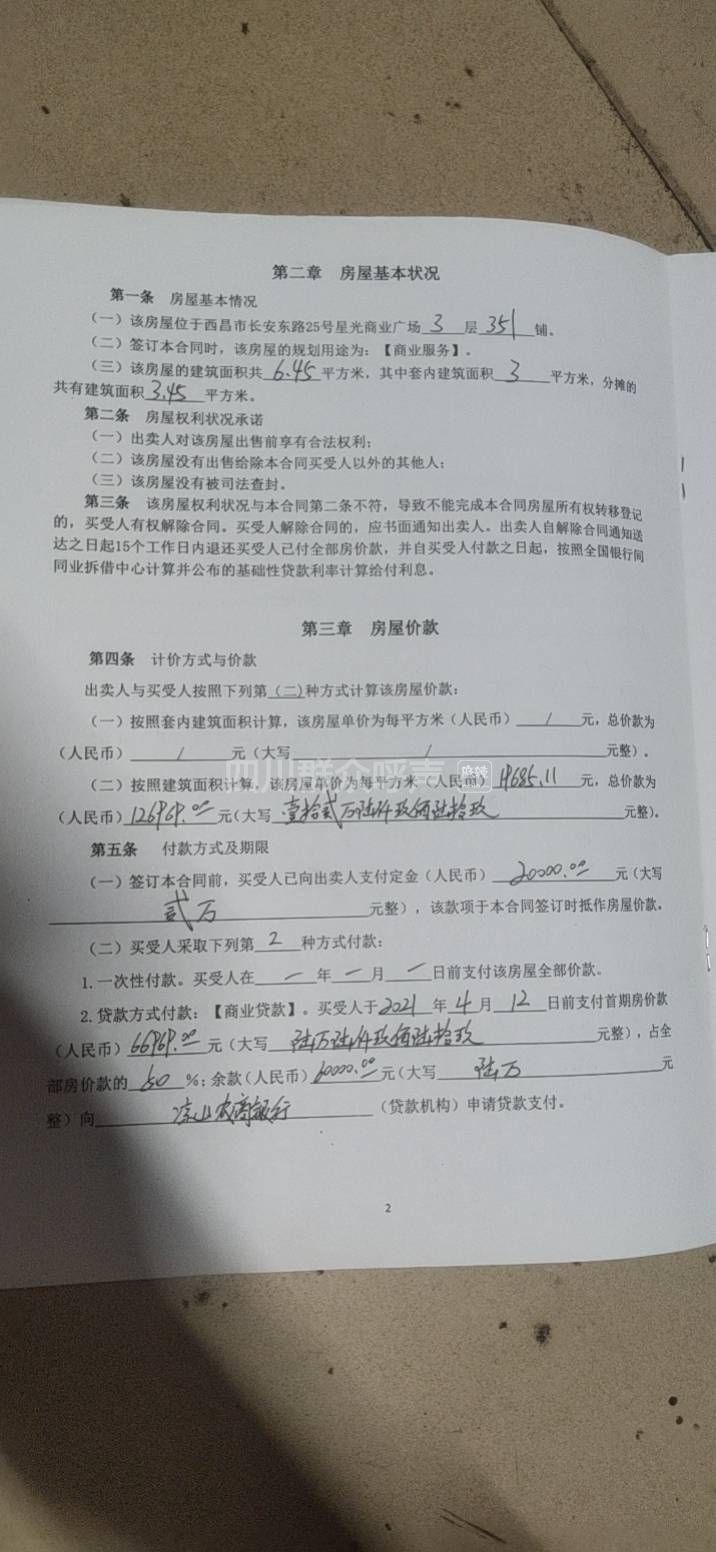 第二章 房屋基本状况
第一条 房屋基本情况
（一）该房屋位于西昌市长安东路25号星光商业广场 3 层 351 铺。
（二）签订本合同时，该房屋的规划用途为：【商业服务】。
（三）该房屋的建筑面积共 6.45 平方米，其中套内建筑面积 3 平方米，分摊的
共有建筑面积 3.45 平方米。
第二条 房屋权利状况承诺
（一）出卖人对该房屋出售前享有合法权利；
（二）该房屋没有出售给除本合同买受人以外的其他人；
（三）该房屋没有被司法查封。
第三条 该房屋权利状况与本合同第二条不符，导致不能完成本合同房屋所有权转移登记
的，买受人有权解除合同。买受人解除合同的，应书面通知出卖人。出卖人自解除合同通知送
达之日起15个工作日内退还买受人已付全部房价款，并自买受人付款之日起，按照全国银行间
同业拆借中心计算并公布的基础性贷款利率计算给付利息。
第三章 房屋价款
第四条 计价方式与价款
出卖人与买受人按照下列第（二）种方式计算该房屋价款：
（一）按照套内建筑面积计算，该房屋单价为每平方米（人民币） / 元，总价款为
（人民币） / 元（大写 / 元整）。
（二）按照建筑面积计算，该房屋单价为每平方米（人民币） 19685.11 元，总价款为
（人民币）126969.00 元（大写 壹拾贰万陆仟玖佰陆拾玖 元整）。
第五条 付款方式及期限
（一）签订本合同前，买受人已向出卖人支付定金（人民币） 20000.00 元（大写
贰万 元整），该款项于本合同签订时抵作房屋价款。
（二）买受人采取下列第 2 种方式付款：
1.一次性付款。买受人在 一 年 一 月 一 日前支付该房屋全部价款。
2.贷款方式付款：【商业贷款】。买受人于 2021 年 4 月 12 日前支付首期房价款
（人民币）66969.00 元（大写 陆万陆仟玖佰陆拾玖 元整），占全
部房价款的 50 %；余款（人民币）60000.00 元（大写 陆万 元
整）向 凉山农商银行 （贷款机构）申请贷款支付。
2
四川群众呼声